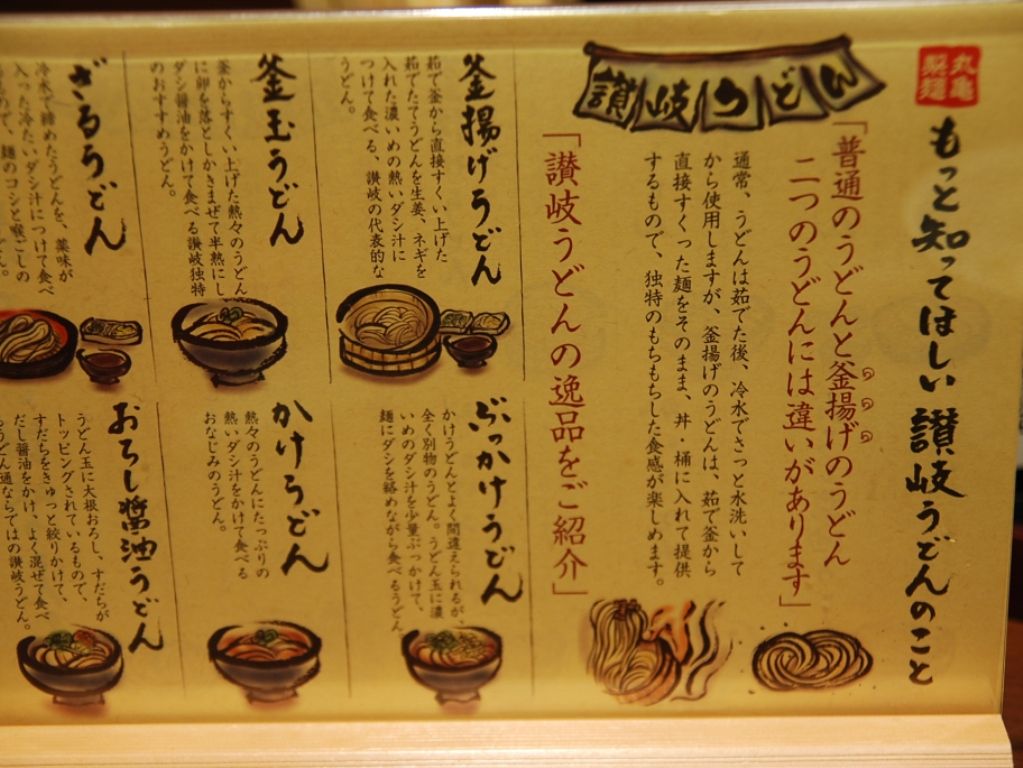 丸亀
製麺
もっと知ってほしい讃岐うどんのこと
讃岐うどん
「普通のうどんと釜揚げのうどん
二つのうどんには違いがあります」
通常、うどんは茹でた後、冷水でさっと水洗いして
から使用しますが、釜揚げのうどんは、茹で釜から
直接すくった麺をそのまま、丼・桶に入れて提供
するもので、独特のもちもちした食感が楽しめます。
「讃岐うどんの逸品をご紹介」
釜揚げうどん
茹で釜から直接すくい上げた
茹でたてうどんを生姜、ネギを
入れた濃いめの熱いダシ汁に
つけて食べる、讃岐の代表的な
うどん。
釜玉うどん
釜からすくい上げた熱々のうどん
に卵を落としかきまぜて半熟にし
ダシ醤油をかけて食べる讃岐独特
のおすすめうどん。
ざるうどん
冷水で締めたうどんを、薬味が
入った冷たいダシ汁につけて食べ
るもので、麺のコシと喉ごしの
ぶっかけうどん
かけうどんとよく間違えられるが、
全く別物のうどん。うどん玉に濃
いめのダシ汁を少量ぶっかけて、
麺にダシを絡めながら食べるうどん
かけうどん
熱々のうどんにたっぷりの
熱いダシ汁をかけて食べる
おなじみのうどん。
おろし醤油うどん
うどん玉に大根おろし、すだちが
トッピングされているもので、
すだちをきゅっと絞りかけて、
だし醤油をかけ、よく混ぜて食べ
うどん通ならではの讃岐うどん。